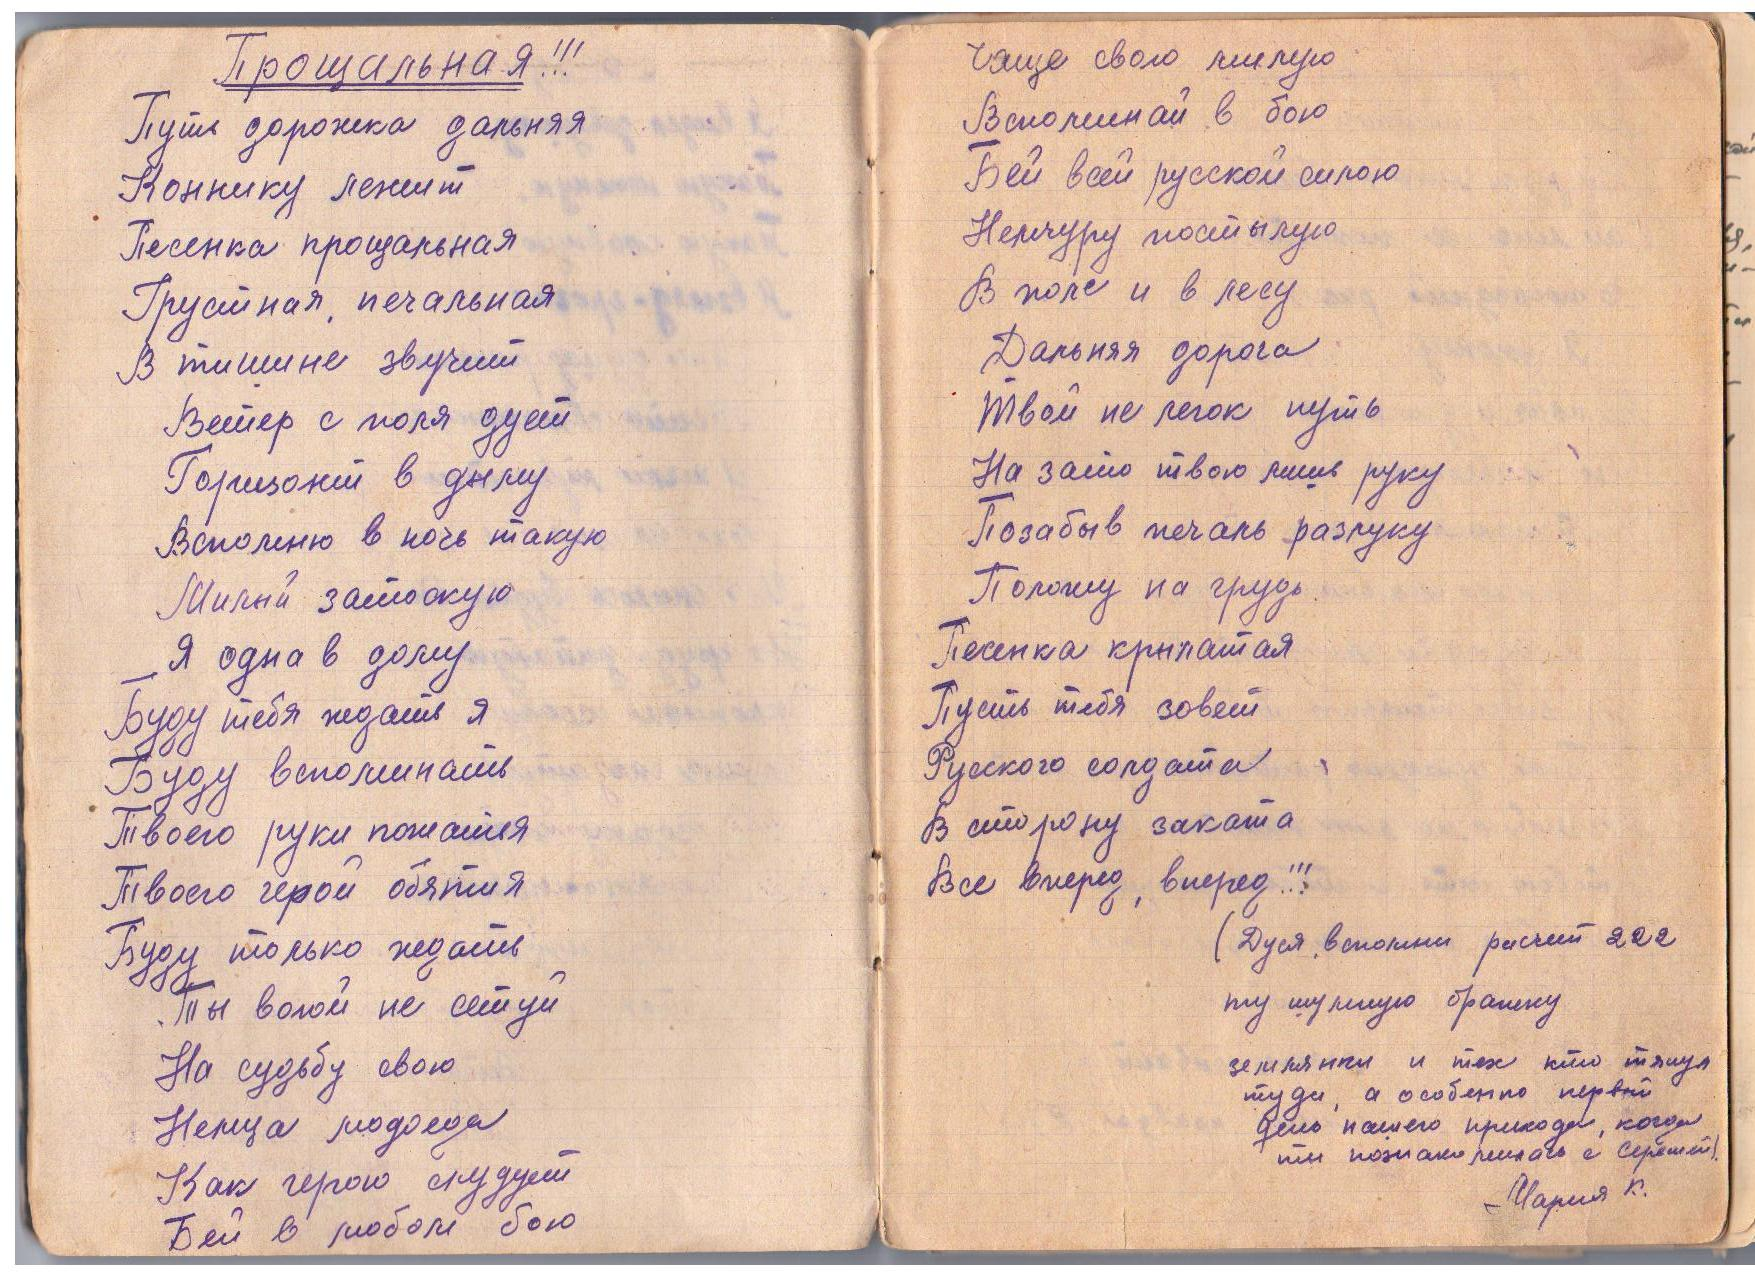 Прощальная!!!
Путь дорожка дальняя
Коннику лежит
Песенка прощальная
Грустная, печальная
В тишине звучит
Ветер с поля дует
Горизонт в дыму
Вспомню в ночь такую
Милый затоскую
Я одна в дому
Буду тебя ждать я
Буду вспоминать
Твоего руки пожатия
Твоего герой обятия
Буду только ждать
Ты воюй не сетуй
На судьбу свою
Немца людоеда
Как герою следует
Бей в любом бою
Чаще свою милую
Вспоминай в бою
Бей всей русской силою
Немчуру постылую
В поле и в лесу
Дальняя дорога
Твой не легок путь
На зато твою лишь руку
Позабыв печаль разлуку
Положу на грудь.
Песенка крылатая
Пусть тебя зовет
Русского солдата
В сторону заката
Все вперед, вперед!!!
(Дуся, вспомни расчет 222
ту шумную бражку
землянки и тех кто тянул
туда, а особенно первый
день нашего прихода, когда
ты познакомилась с Сережей).
– Мария К.